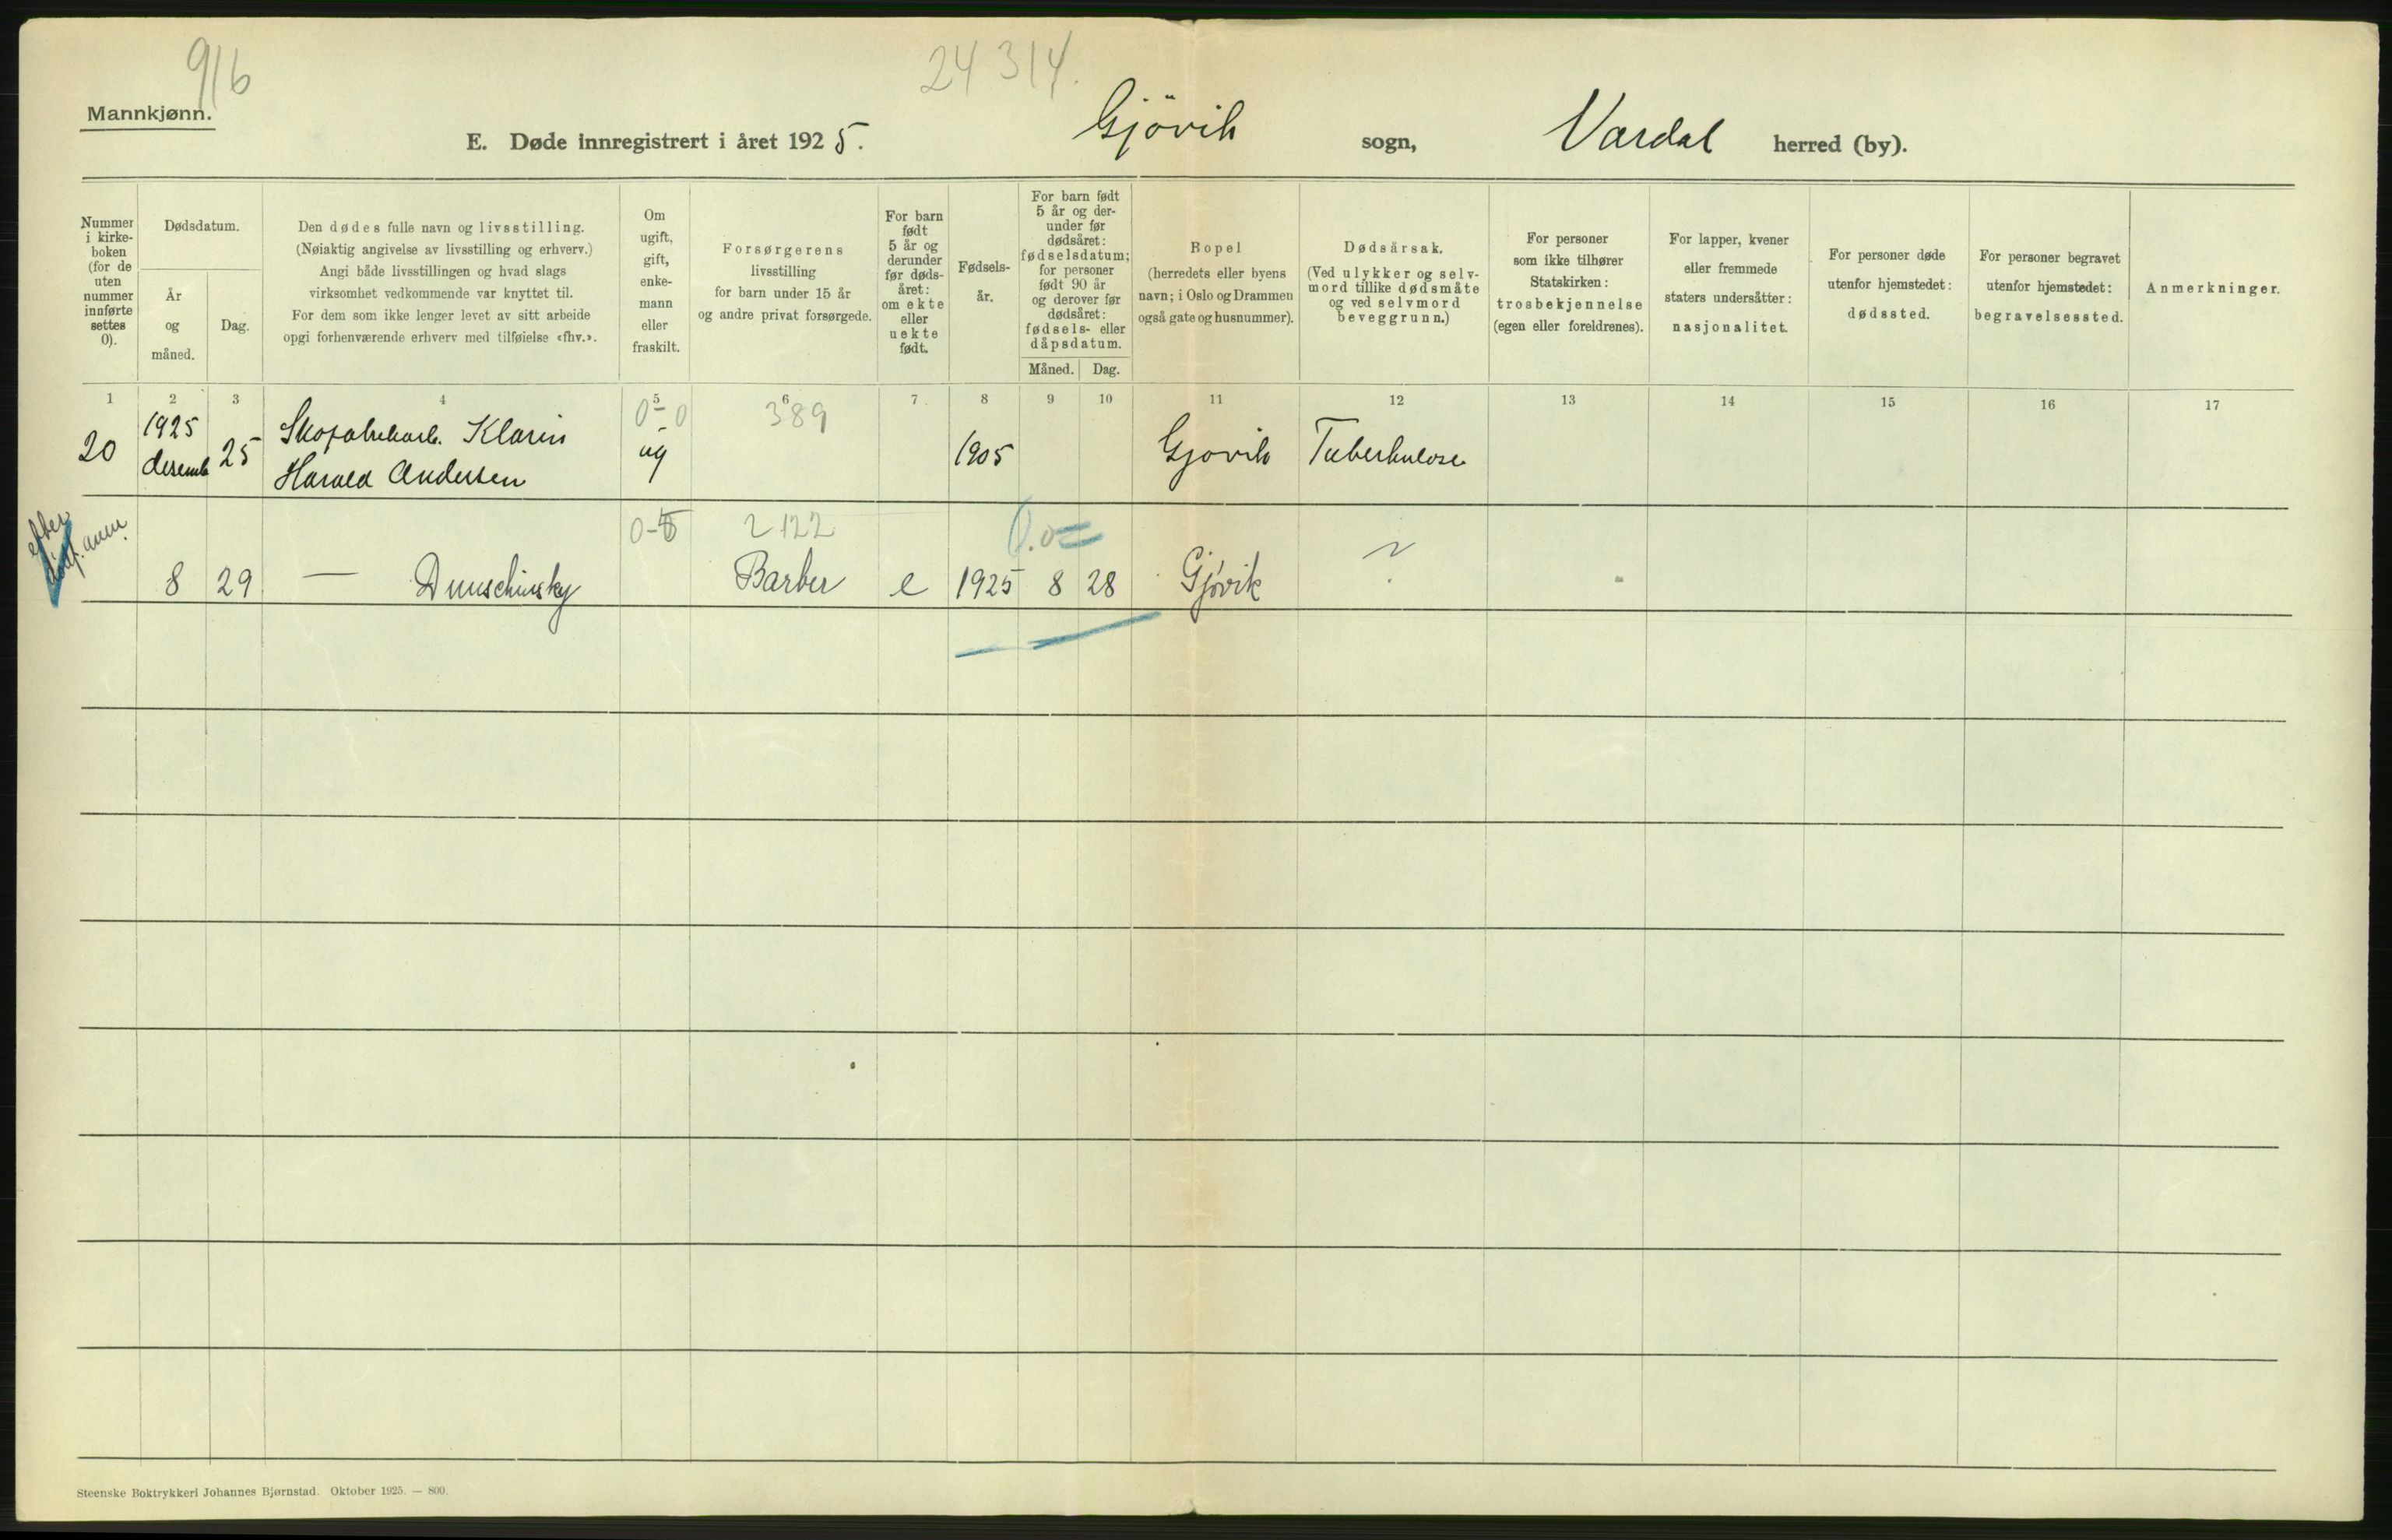 916
24314.
Mannkjønn.
E. Døde innregistrert i året 1925.
Gjövik sogn, Vardal herred (by).
Nummer
i kirke-
boken
(for de
uten
nummer
innførte
settes
0).
Dødsdatum.
År
og
måned.
Dag.
Den dødes fulle navn og livsstilling.
(Nøiaktig angivelse av livsstilling og erhverv.)
Angi både livsstillingen og hvad slags
virksomhet vedkommende var knyttet til.
For dem som ikke lenger levet av sitt arbeide
opgi forhenværende erhverv med tilføielse «fhv.».
Om
ugift,
gift,
enke-
mann
eller
fraskilt.
Forsørgerens
livsstilling
for barn under 15 år
og andre privat forsørgede.
For barn
født
5 år og
derunder
før døds-
året:
om ekte
eller
uekte
født.
Fødsels-
år.
For barn født
5 år og der-
under før
dødsåret:
fødselsdatum;
for personer
født 90 år
og derover før
dødsåret:
fødsels- eller
dåpsdatum.
Måned. Dag.
Bopel
(herredets eller byens
navn; i Oslo og Drammen
også gate og husnummer).
Dødsårsak.
(Ved ulykker og selv-
mord tillike dødsmåte
og ved selvmord
beveggrunn.)
For personer
som ikke tilhører
Statskirken:
trosbekjennelse
(egen eller foreldrenes).
For lapper, kvener
eller fremmede
staters undersåtter:
nasjonalitet.
For personer døde
utenfor hjemstedet:
dødssted.
For personer begravet
utenfor hjemstedet:
begravelsessted.
Anmerkninger.
1 2 3 4 5 6 7 8 9 10 11 12 13 14 15 16 17
1925 Skofabrikarb. Klarin 0-0 389
20 desemb 25 Harald Andersen ug 1905 Gjovik Tuberkulose
efter 0-5 2122 0.0
8 29 — Dunschinsky Barber e 1925 8 28 Gjövik ?
Steenske Boktrykkeri Johannes Bjørnstad. Oktober 1925. — 800.